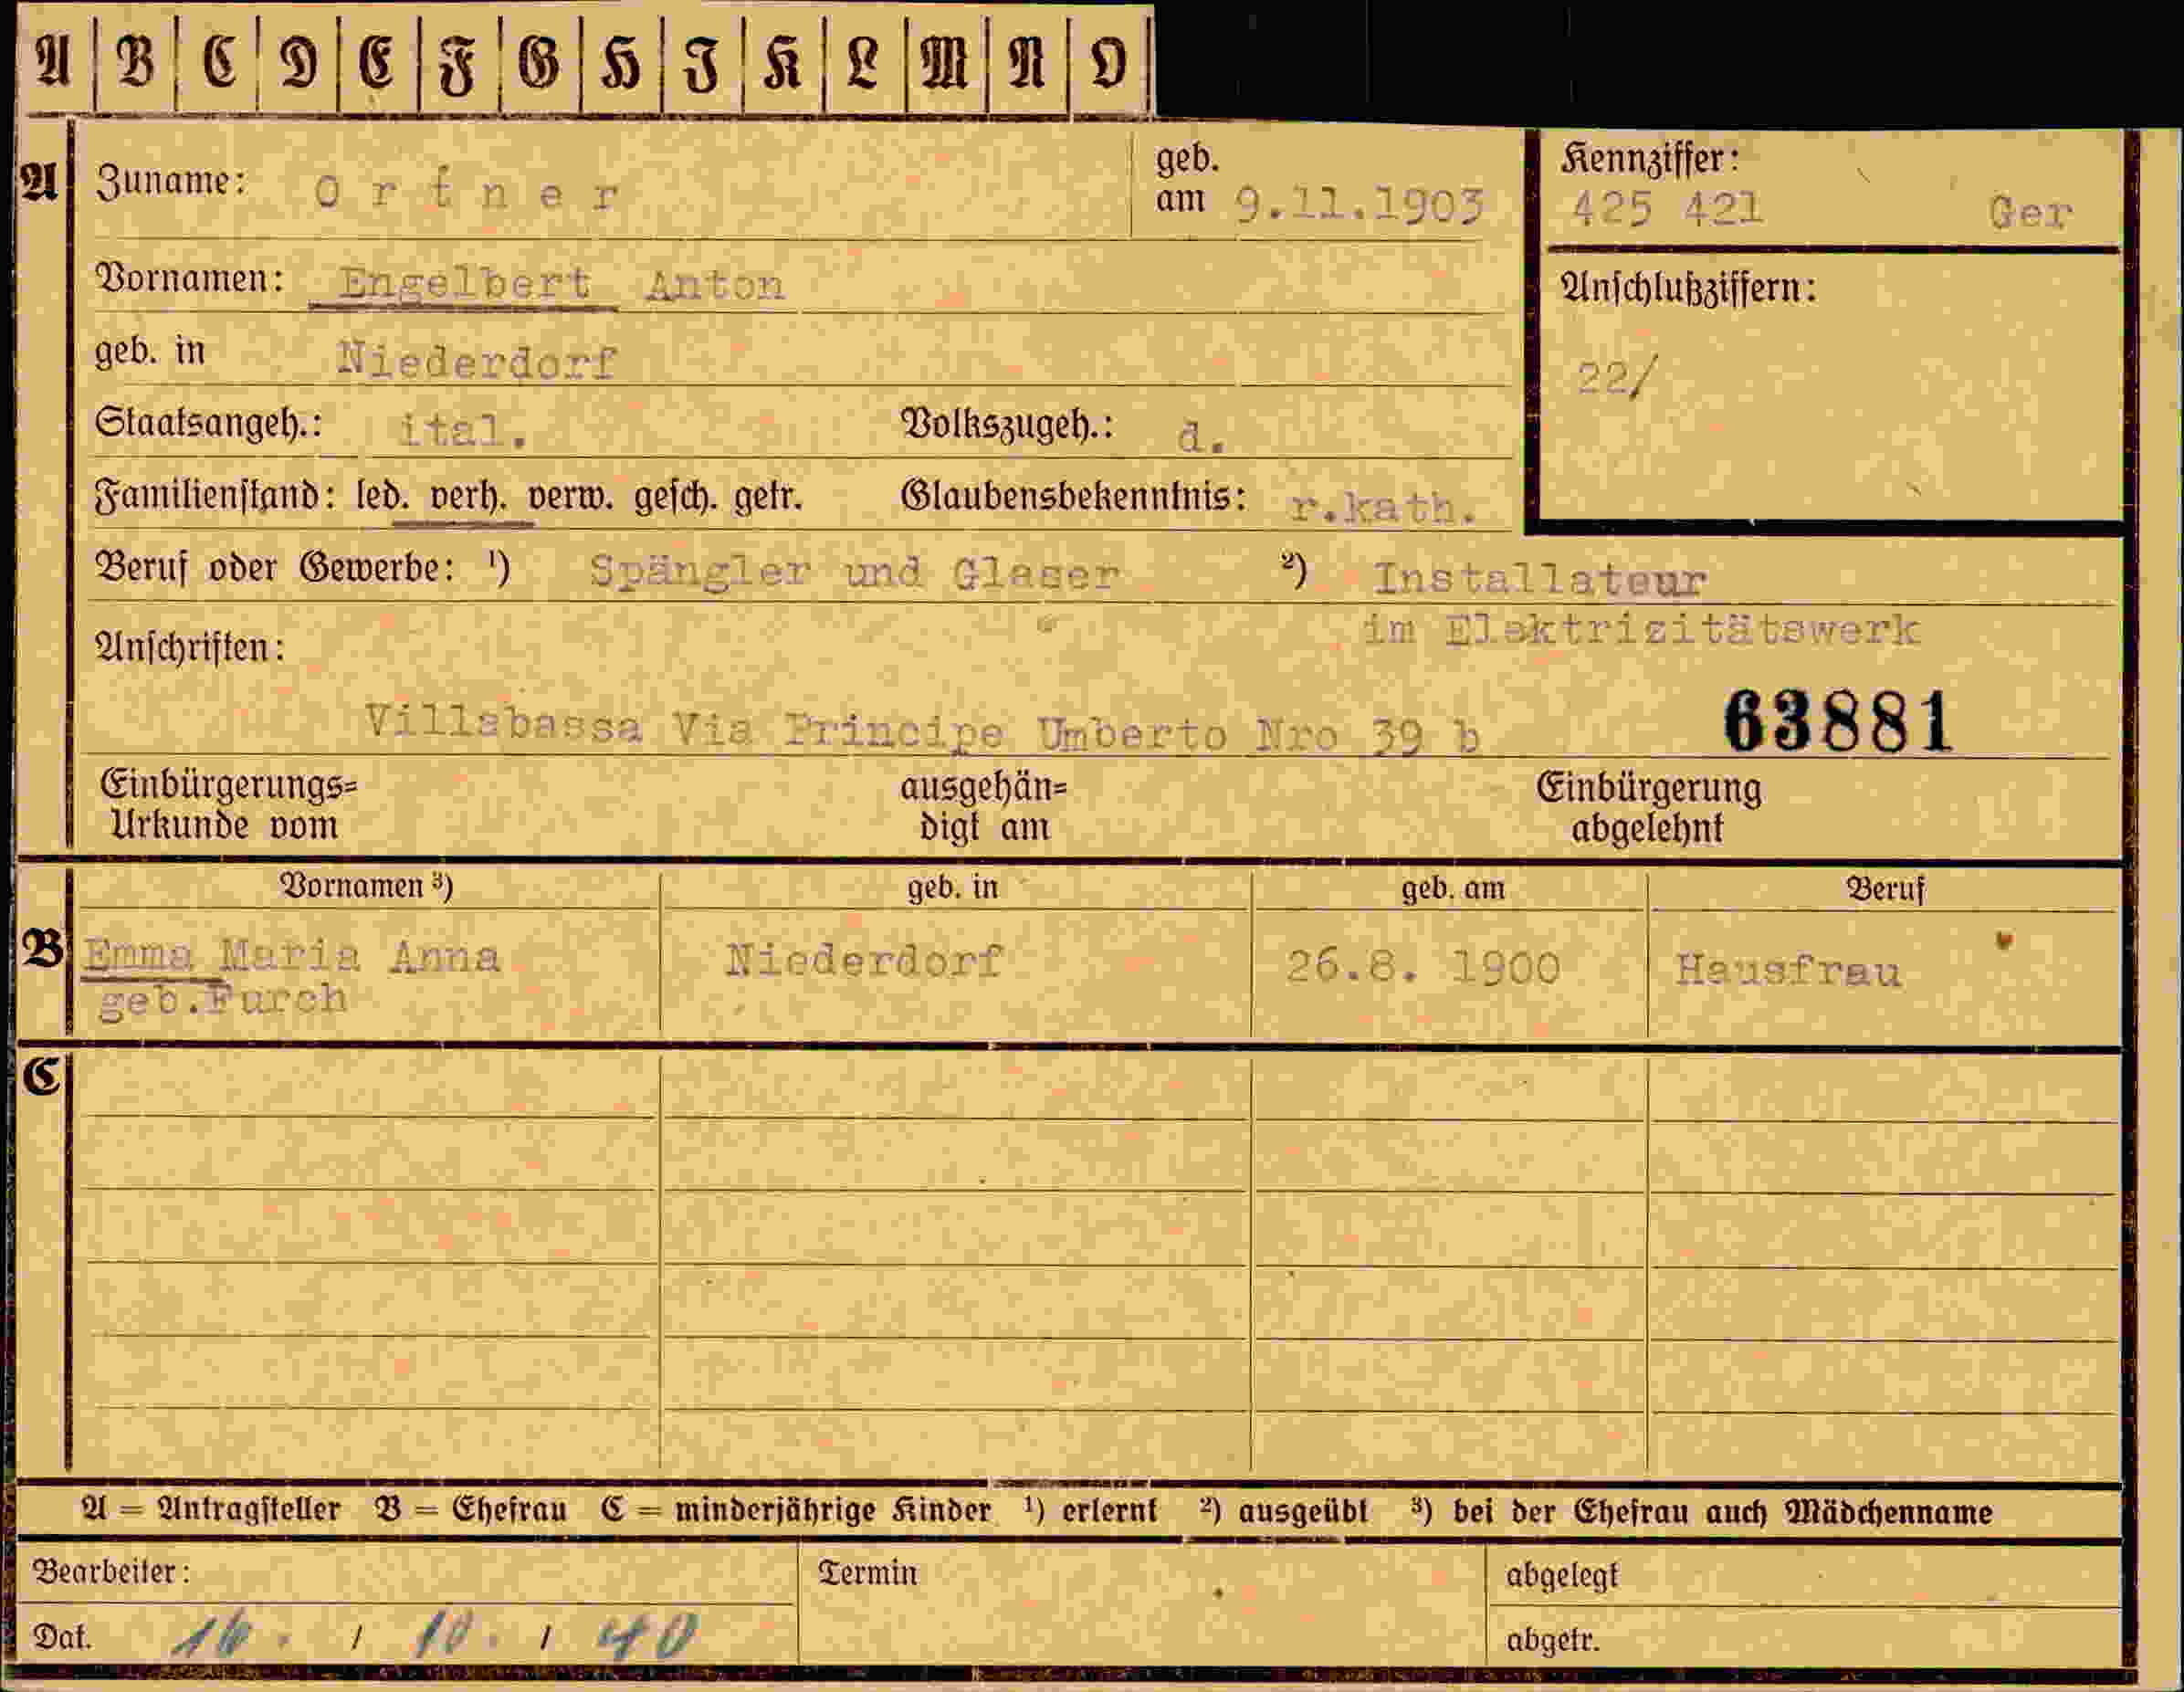 A B C D E F G H I K L M N O
A Zuname: Ortner geb. am 9.11.1903 Kennziffer: 425 421 Ger
Vornamen: Engelbert Anton Anschlußziffern:
geb. in Niederdorf 22/
Staatsangeh.: ital. Volkszugeh.: d.
Familienstand: led. verh. verw. gesch. getr. Glaubensbekenntnis: r.kath.
Beruf oder Gewerbe: ¹) Spängler und Glaser ²) Installateur
im Elektrizitätswerk
Anschriften:
Villabassa Via Principe Umberto Nro 39 b 63881
Einbürgerungs= ausgehän= Einbürgerung
Urkunde vom digt am abgelehnt
Vornamen ³) geb. in geb. am Beruf
B Emma Maria Anna Niederdorf 26.8. 1900 Hausfrau
geb.Furch
C
A = Antragsteller B = Ehefrau C = minderjährige Kinder ¹) erlernt ²) ausgeübt ³) bei der Ehefrau auch Mädchenname
Bearbeiter: Termin abgelegt
Dat. 16. / 10. / 40 abgetr.